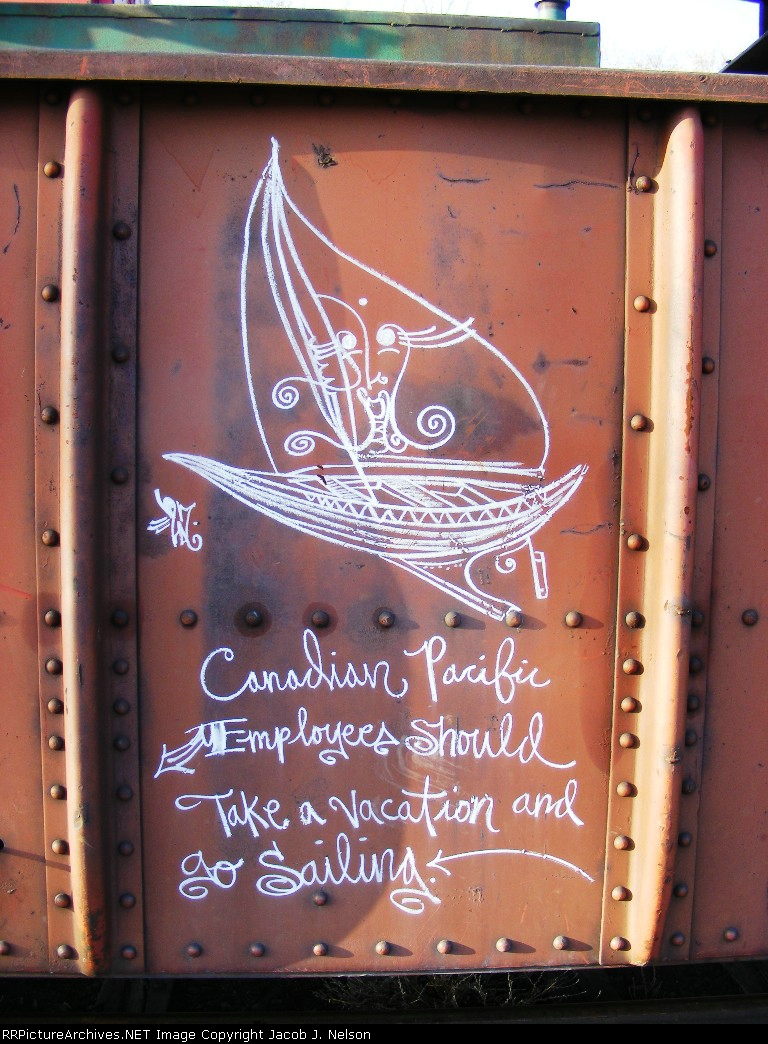 Canadian Pacific
Employees Should
Take a vacation and
go Sailing.
RRPictureArchives.NET Image Copyright Jacob J. Nelson